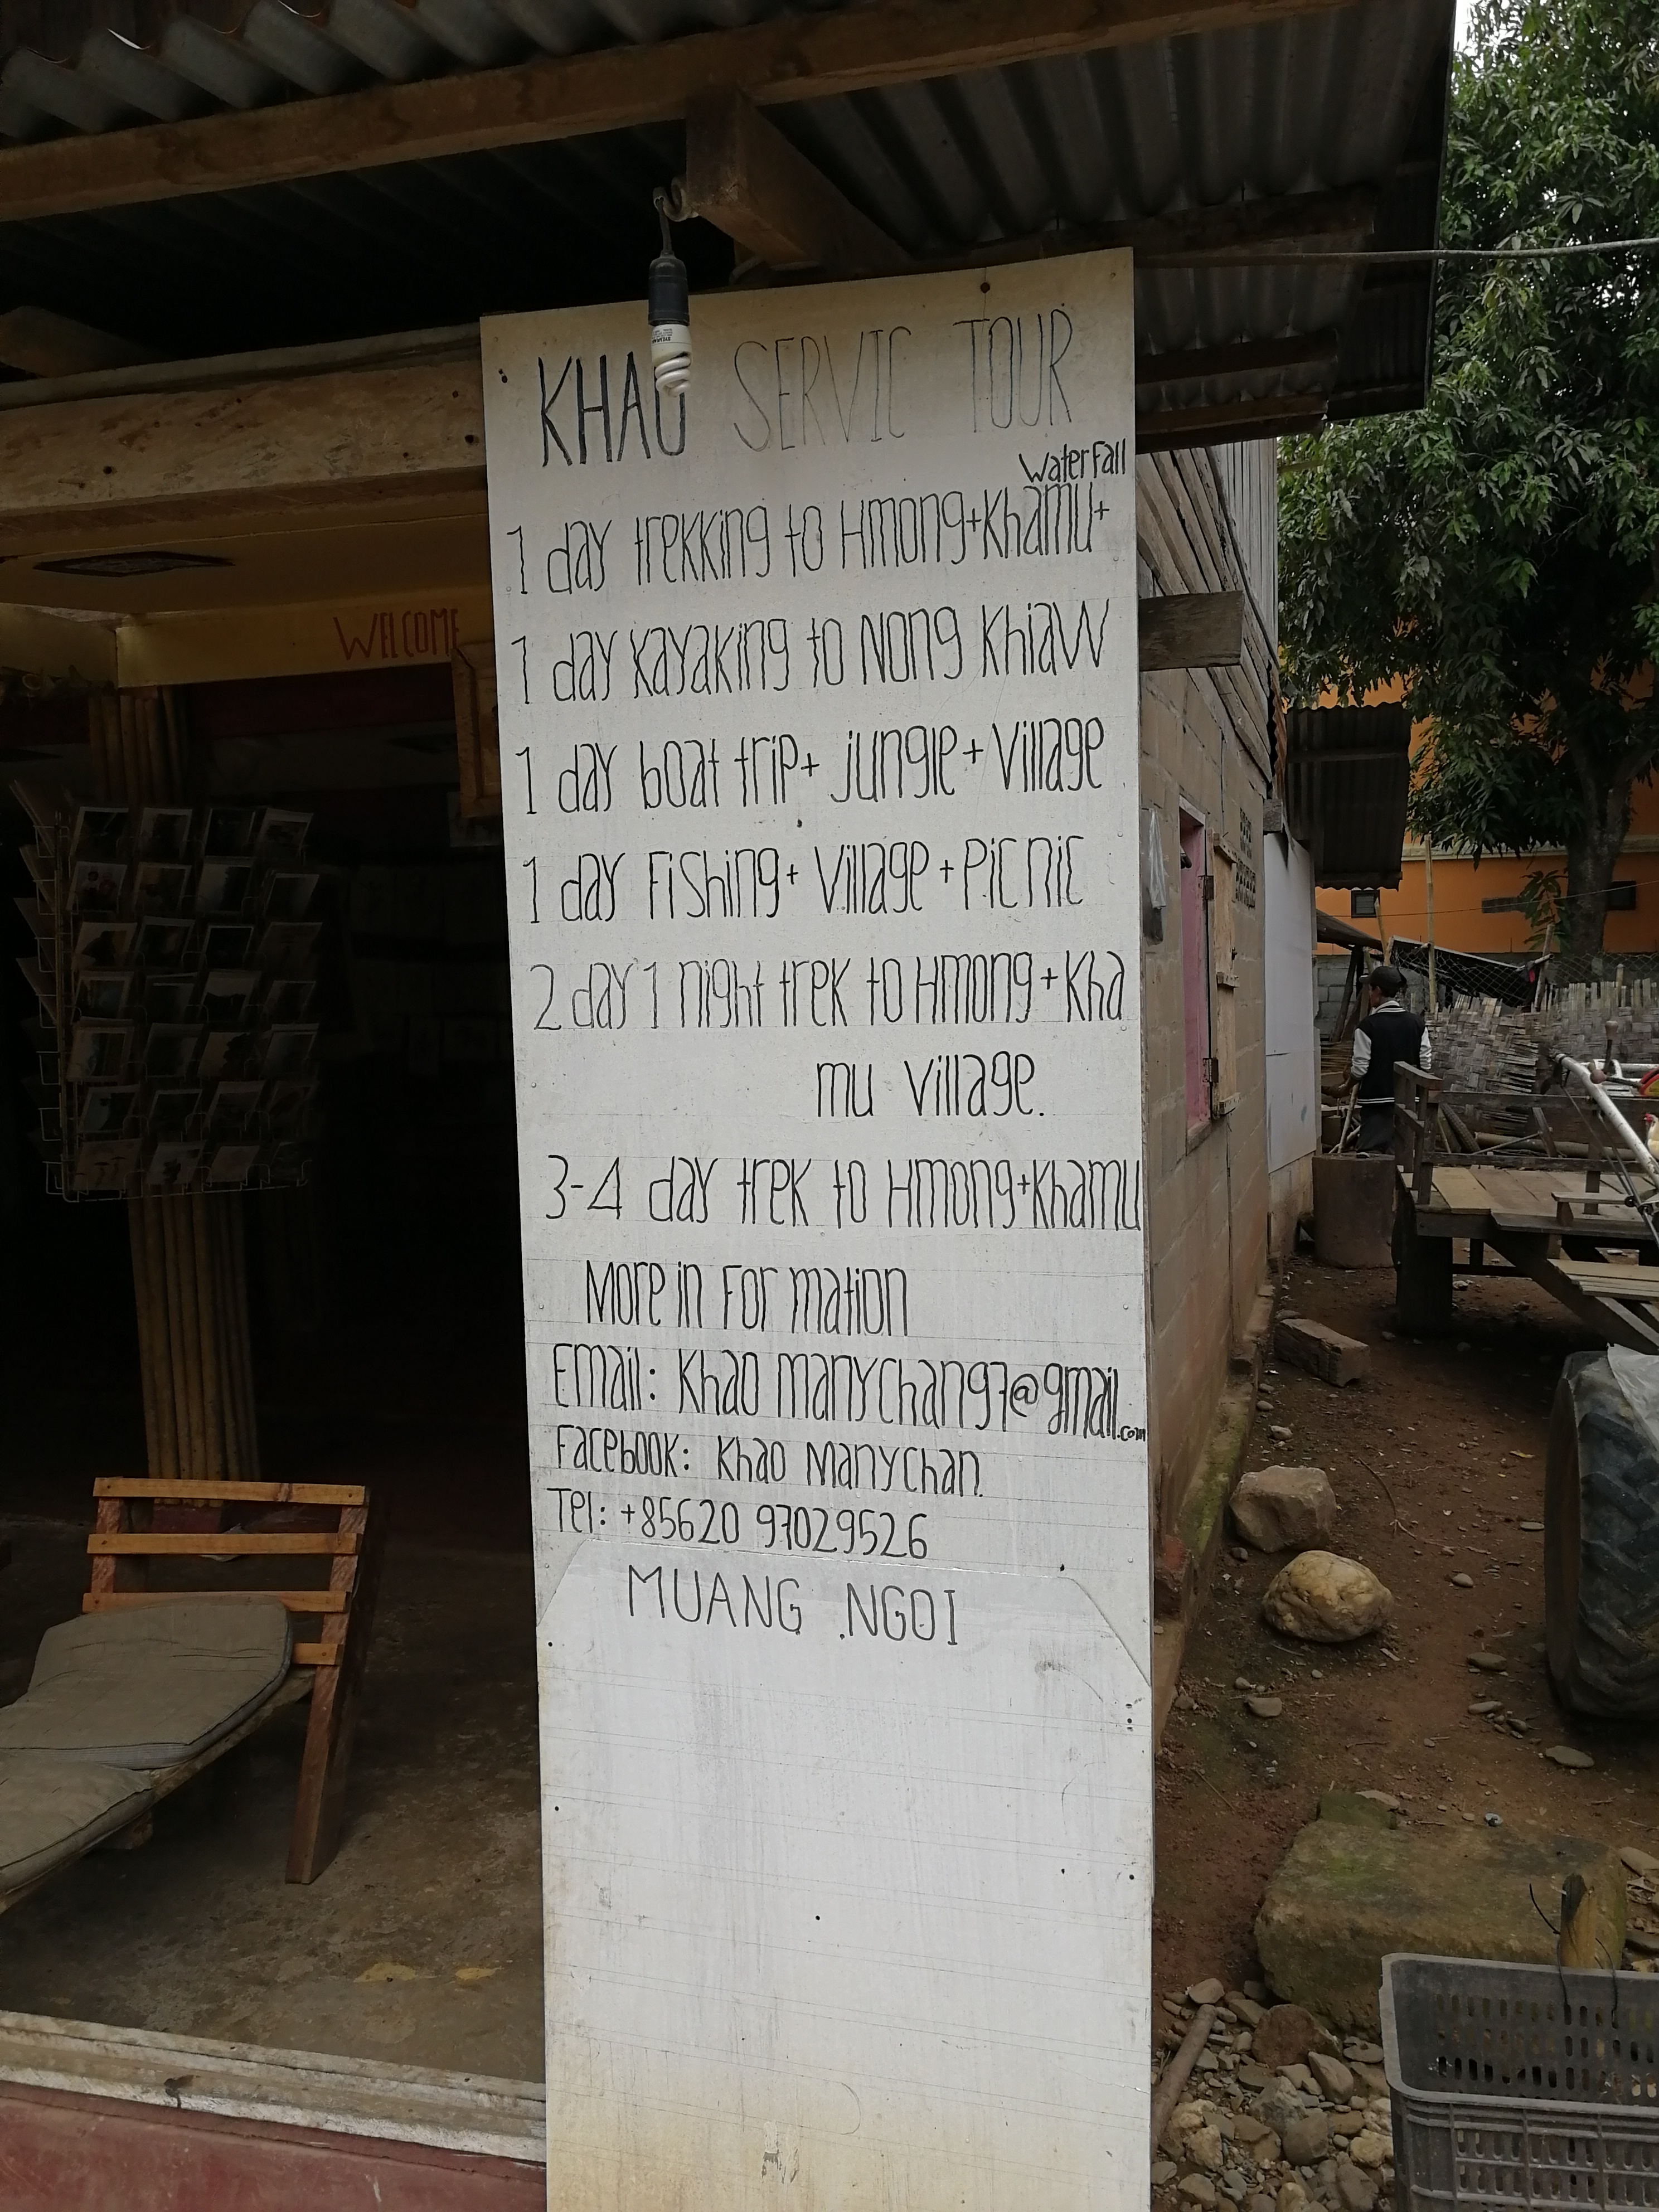 KHAO SERVIC TOUR
WaterFall
1 day trekking to Hmong+Khamu+
1 day kayaking to Nong Khiaw
1 day boat trip+ jungle+ Village
1 day Fishing+ Village + Picnic
2 day 1 night trek to Hmong + Kha
mu Village.
3-4 day trek to Hmong+Khamu
More in For mation
Email: Khao manychang7@gmail.com
Facebook: Khao Manychan.
Tel: +85620 97029526
MUANG .NGOI
WELCOME